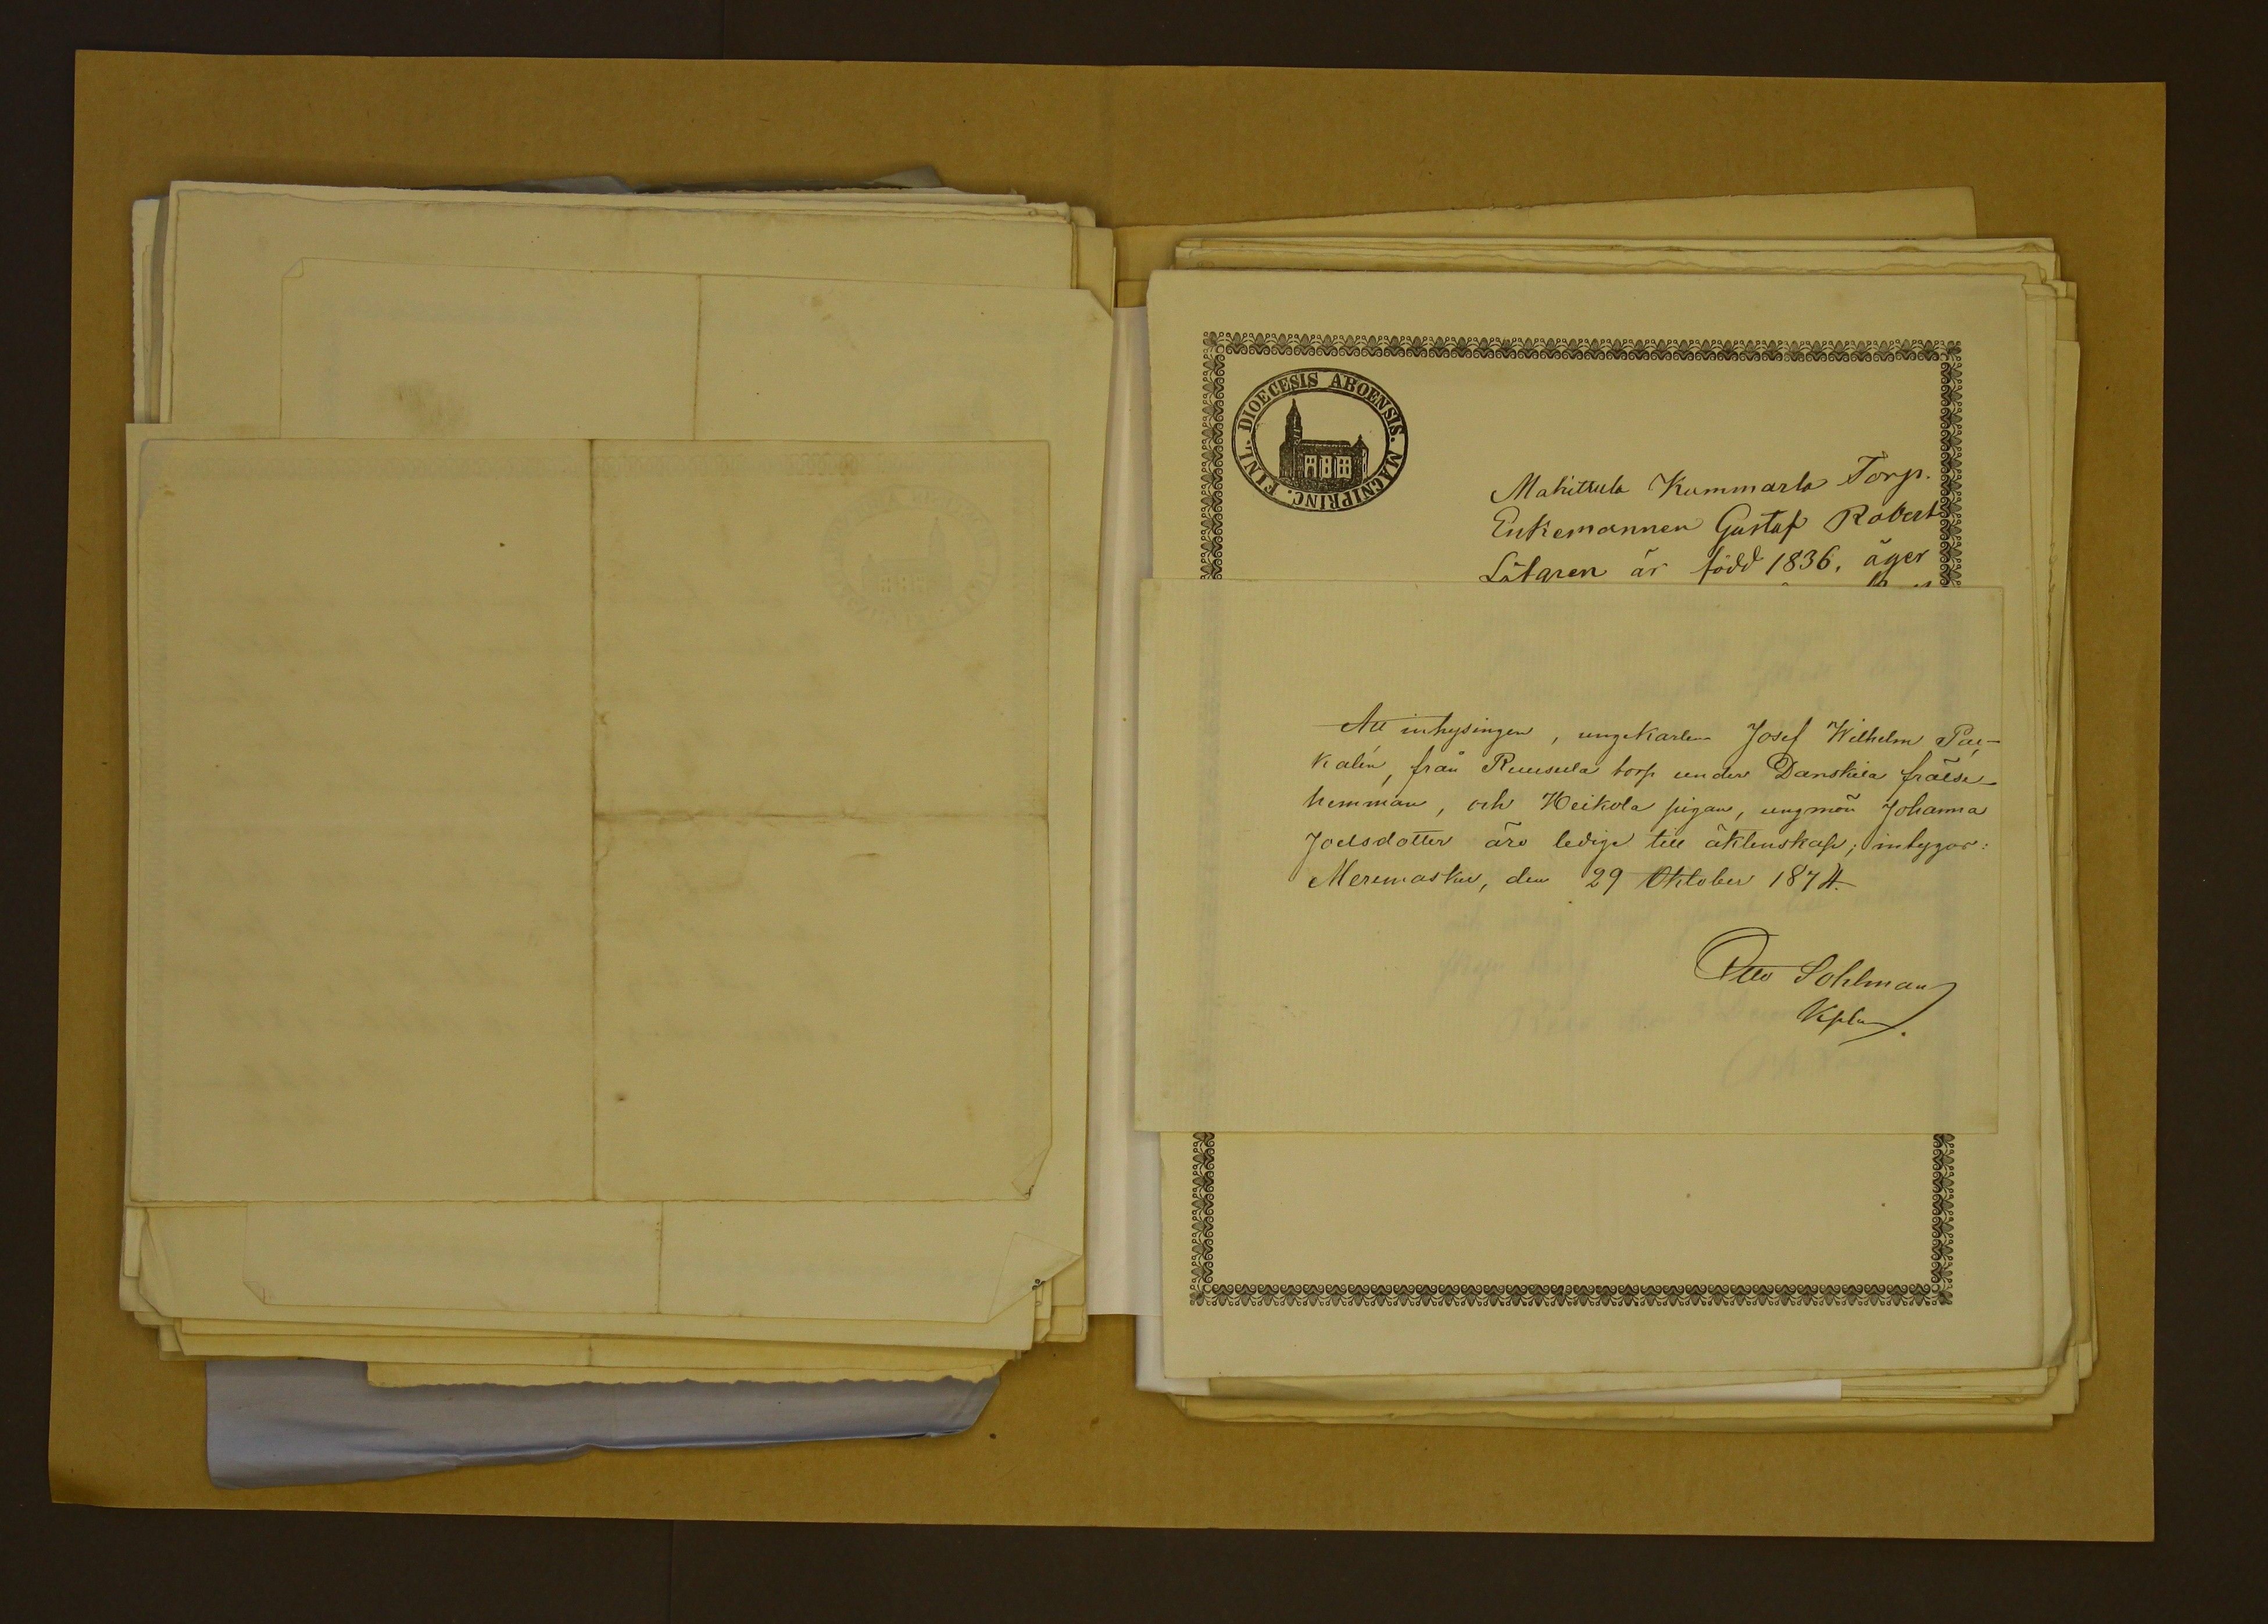 DIOECESIS ABOENSIS. MAGNIPRINC. FINL.
Mahittula Kummarla Torp.
Enkemannen Gustaf Robert
Lötgren är född 1836, äger
Att inhysingen, ungkarlen Josef Wilhelm Pac-
kalén, från Ruusula torp under Danskila frälse-
hemman, och Heikola pigan, ungmön Johanna
Joelsdotter äro lediga till äktenskap; intygar:
Merimasku, den 29 Oktober 1874.
Otto Sohlman
Kpln.